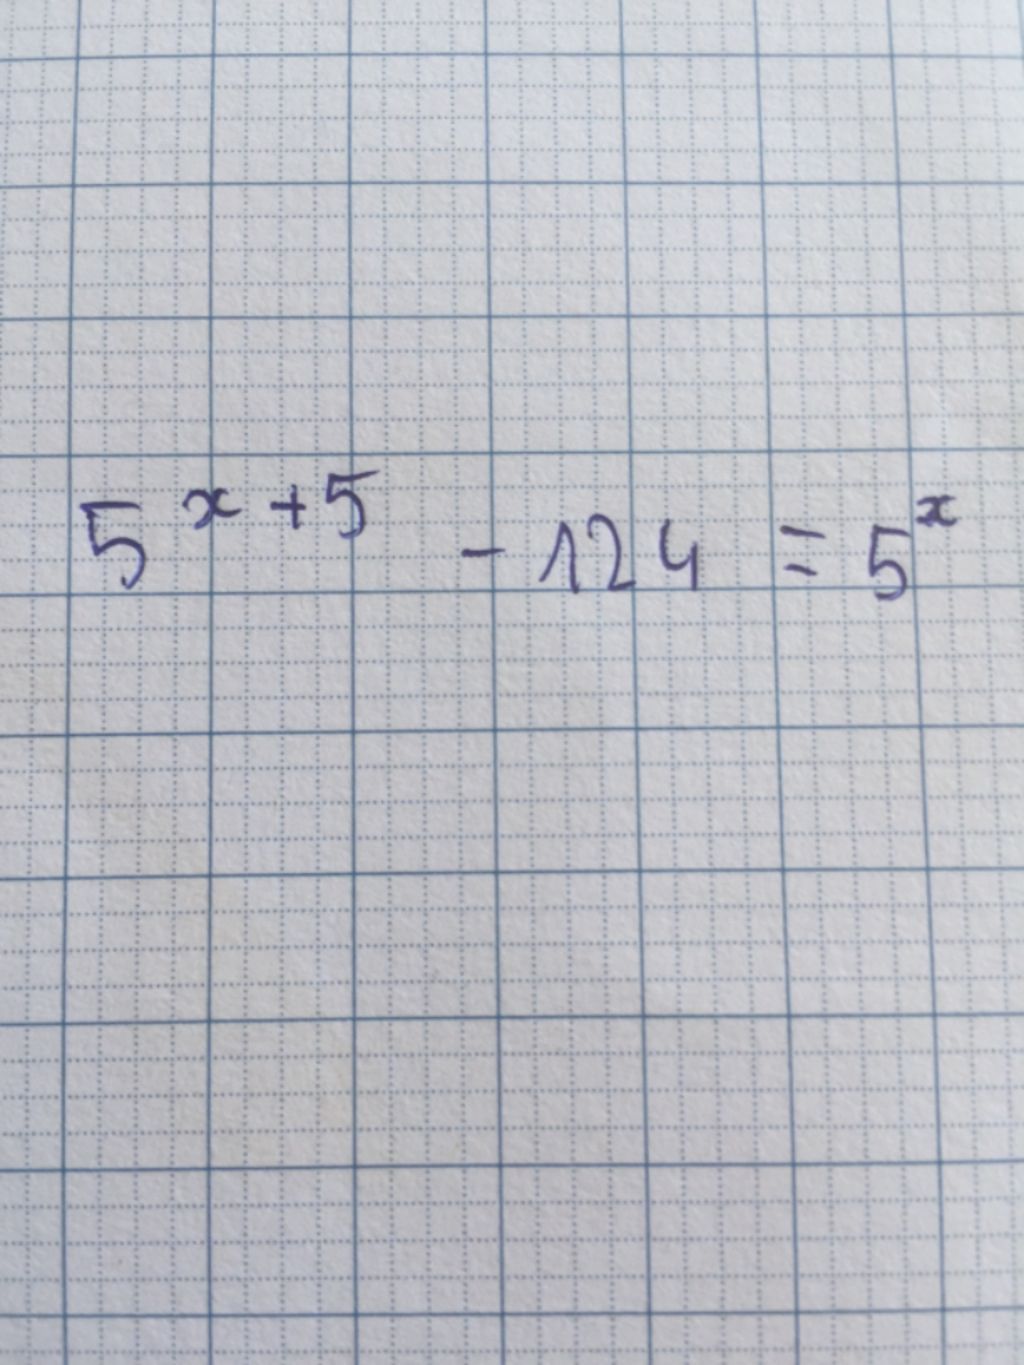 5^{x+5} - 124 = 5^x